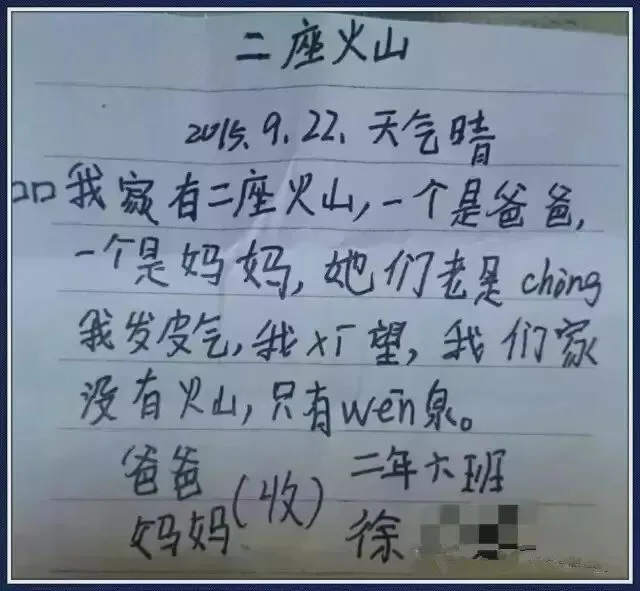 二座火山
2015.9.22.天气晴
口口我家有二座火山,一个是爸爸,
一个是妈妈,她们老是chòng
我发皮气,我xī望,我们家
没有火山,只有wēn泉。
爸爸
妈妈(收)
二年六班
徐